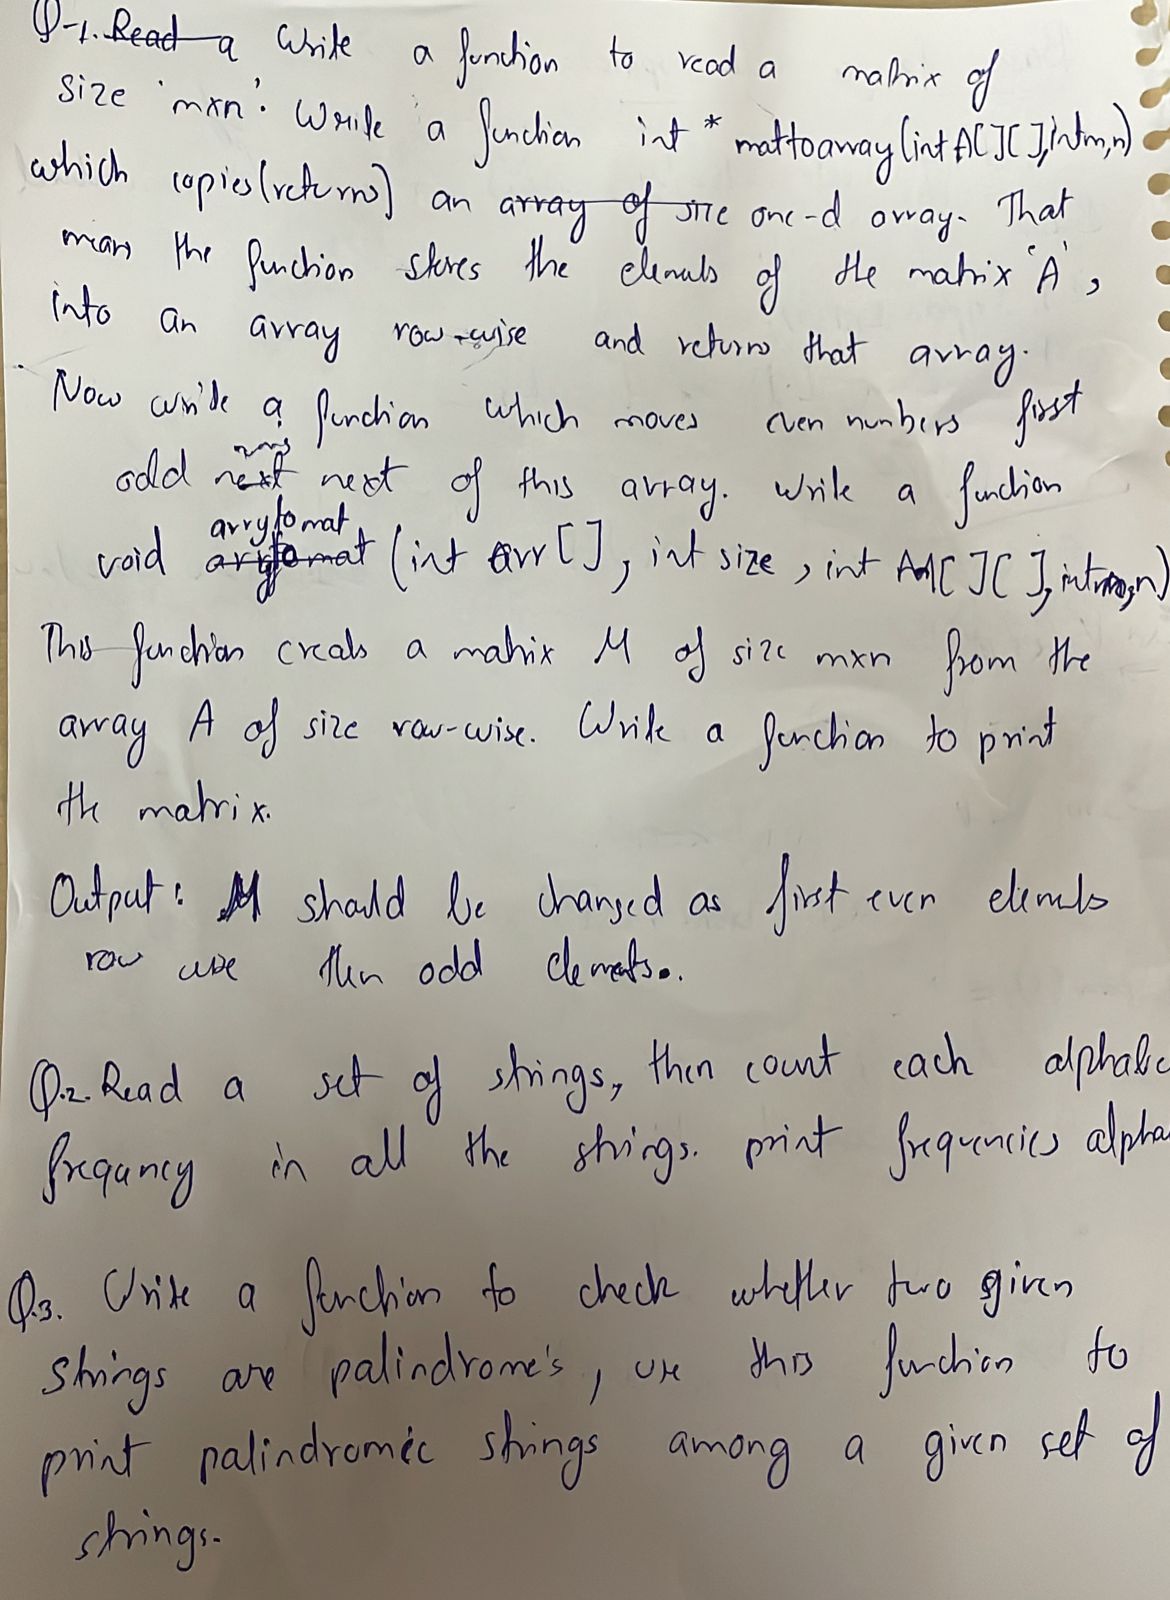 Q-1. Read a Write a function to read a matrix of
size 'mxn'. Write a function int * mattoarray(int A[][], int m,n)
which copies(returns) an array of size one-d array. That
means the function stores the elements of the matrix 'A',
into an array row-wise and returns that array.
Now write a function which moves even numbers first
odd next next of this array. Write a function
arrytomat
void (int arr[], int size, int [][], int m,n)
This function creats a matrix M of size mxn from the
array A of size row-wise. Write a function to print
the matrix.
Output: M should be changed as first even elements
row wise then odd elements.
Q.2. Read a set of strings, then count each alphabe
frequncy in all the strings. print frequencies alpha
Q.3. Write a function to check whether two given
strings are palindrome's, use this function to
print palindromic strings among a given set of
strings.